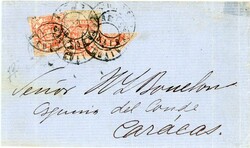 Señor W L Boulton
Esquina del Conde
Carácas.